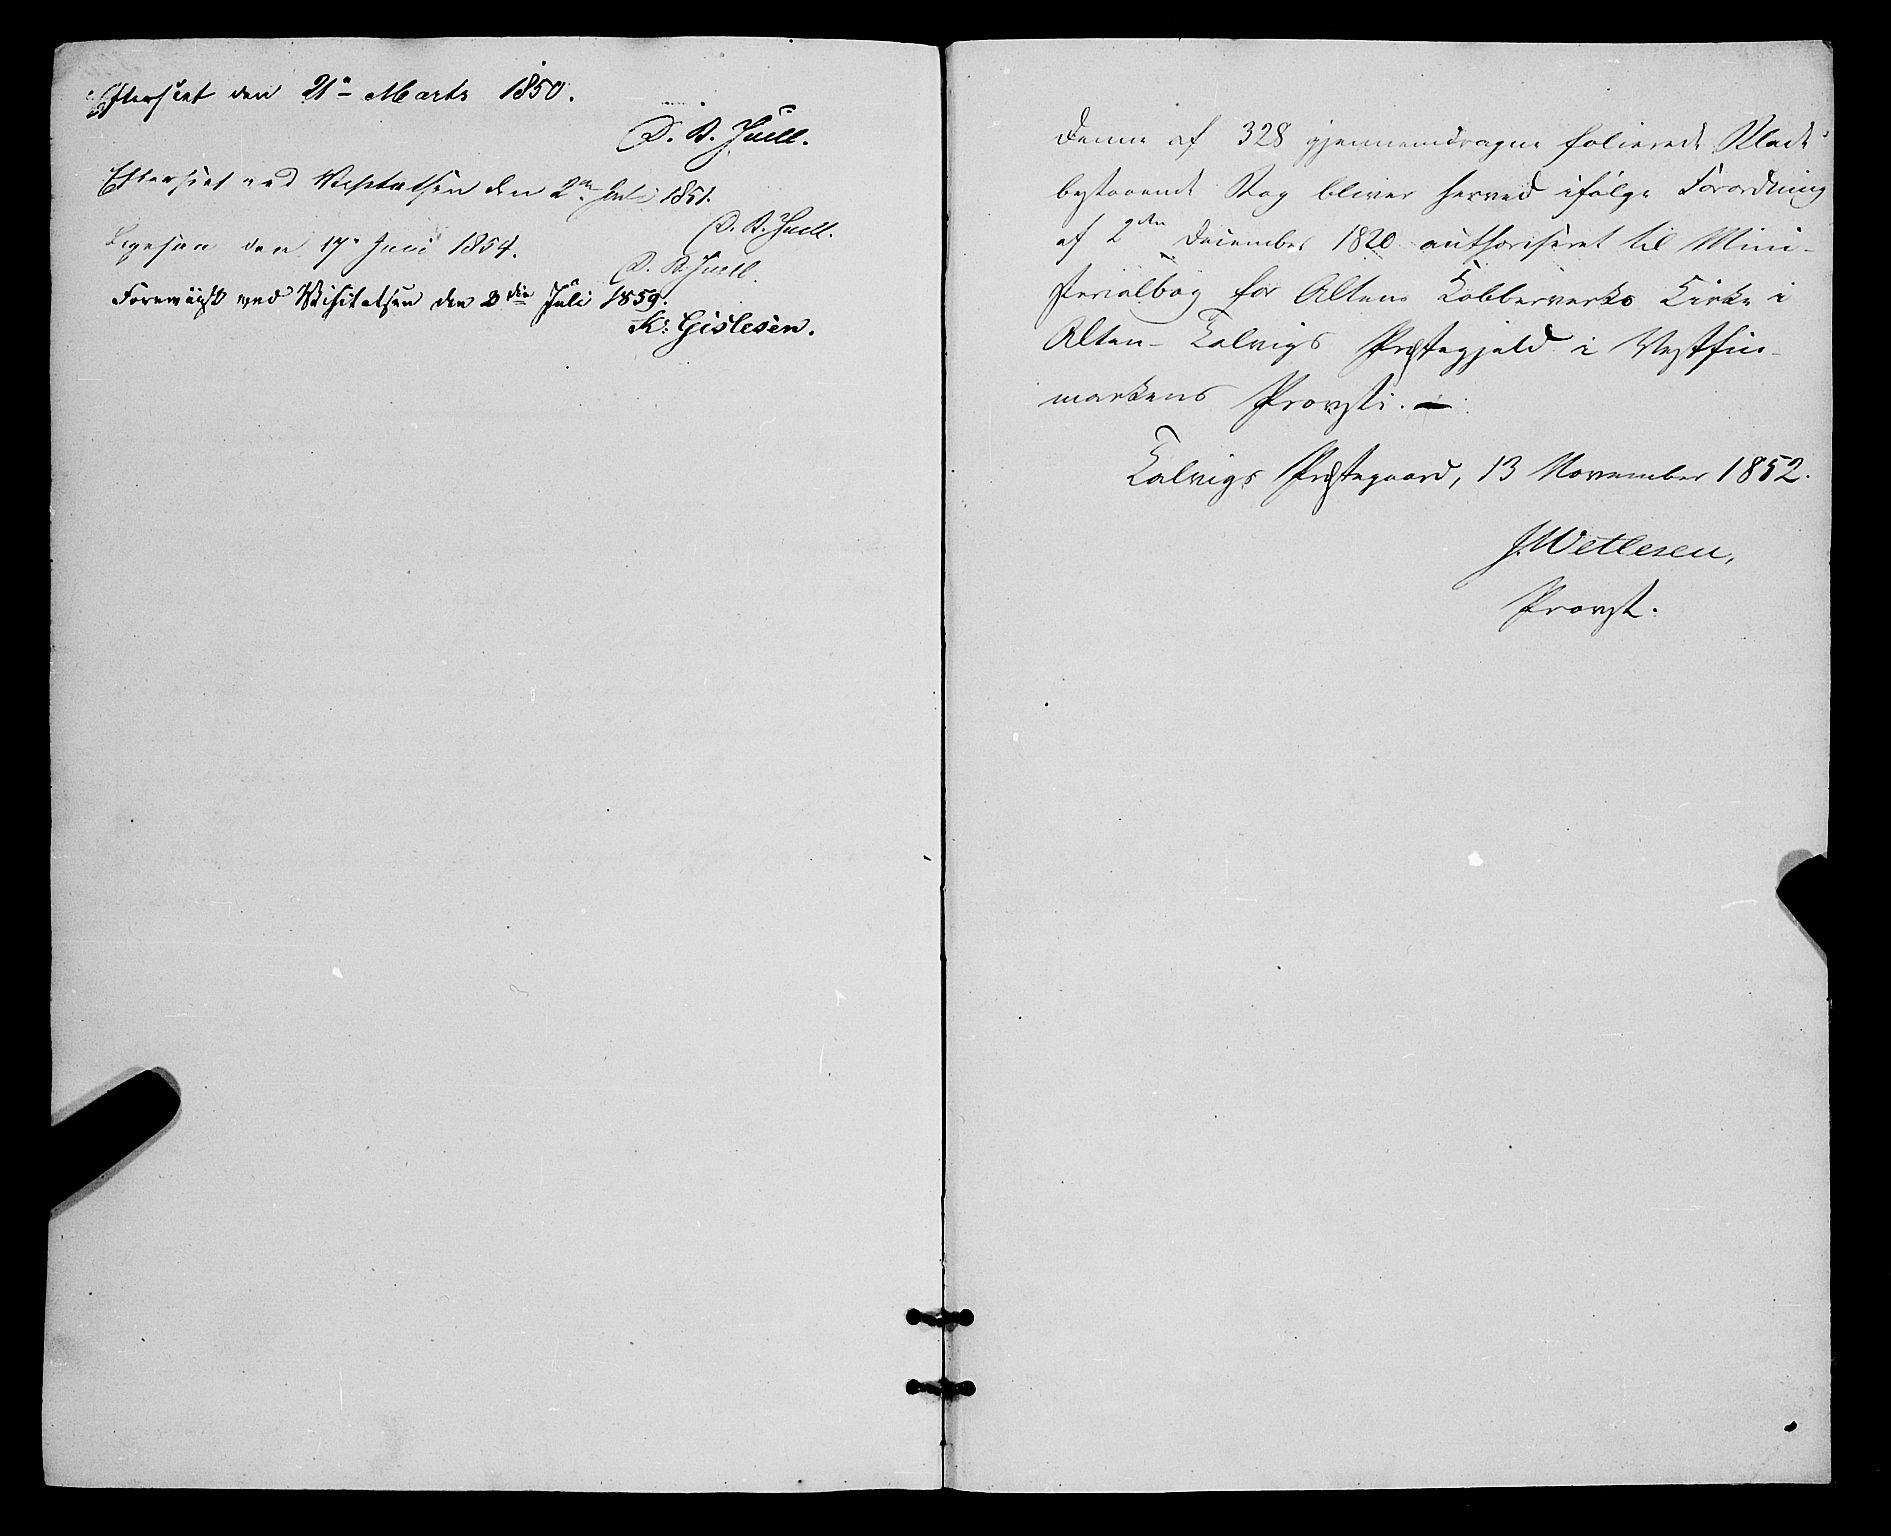 Efterseet den 21n Marts 1850.
D. B. Juell.
Efterseet ved Visitatsen den 2n Juli 1851.
D. B. Juell.
Ligesaa den 17n Juni 1854.
D. B. Juell.
Foreviist ved Visitatsen den 3die Juli 1859.
Kr: Gislesen.
Denne af 328 gjennemdragne folierede Blade
bestaaende Bog bliver herved ifølge Forordning
af 2den December 1820 authoriseret til Mini-
sterialbog for Altens Kobberverks Kirke i
Alten-Talvigs Præstegjeld i Vestfin-
markens Provsti. —
Talvigs Præstegaard, 13 November 1852.
J. Wetlesen,
Provst.